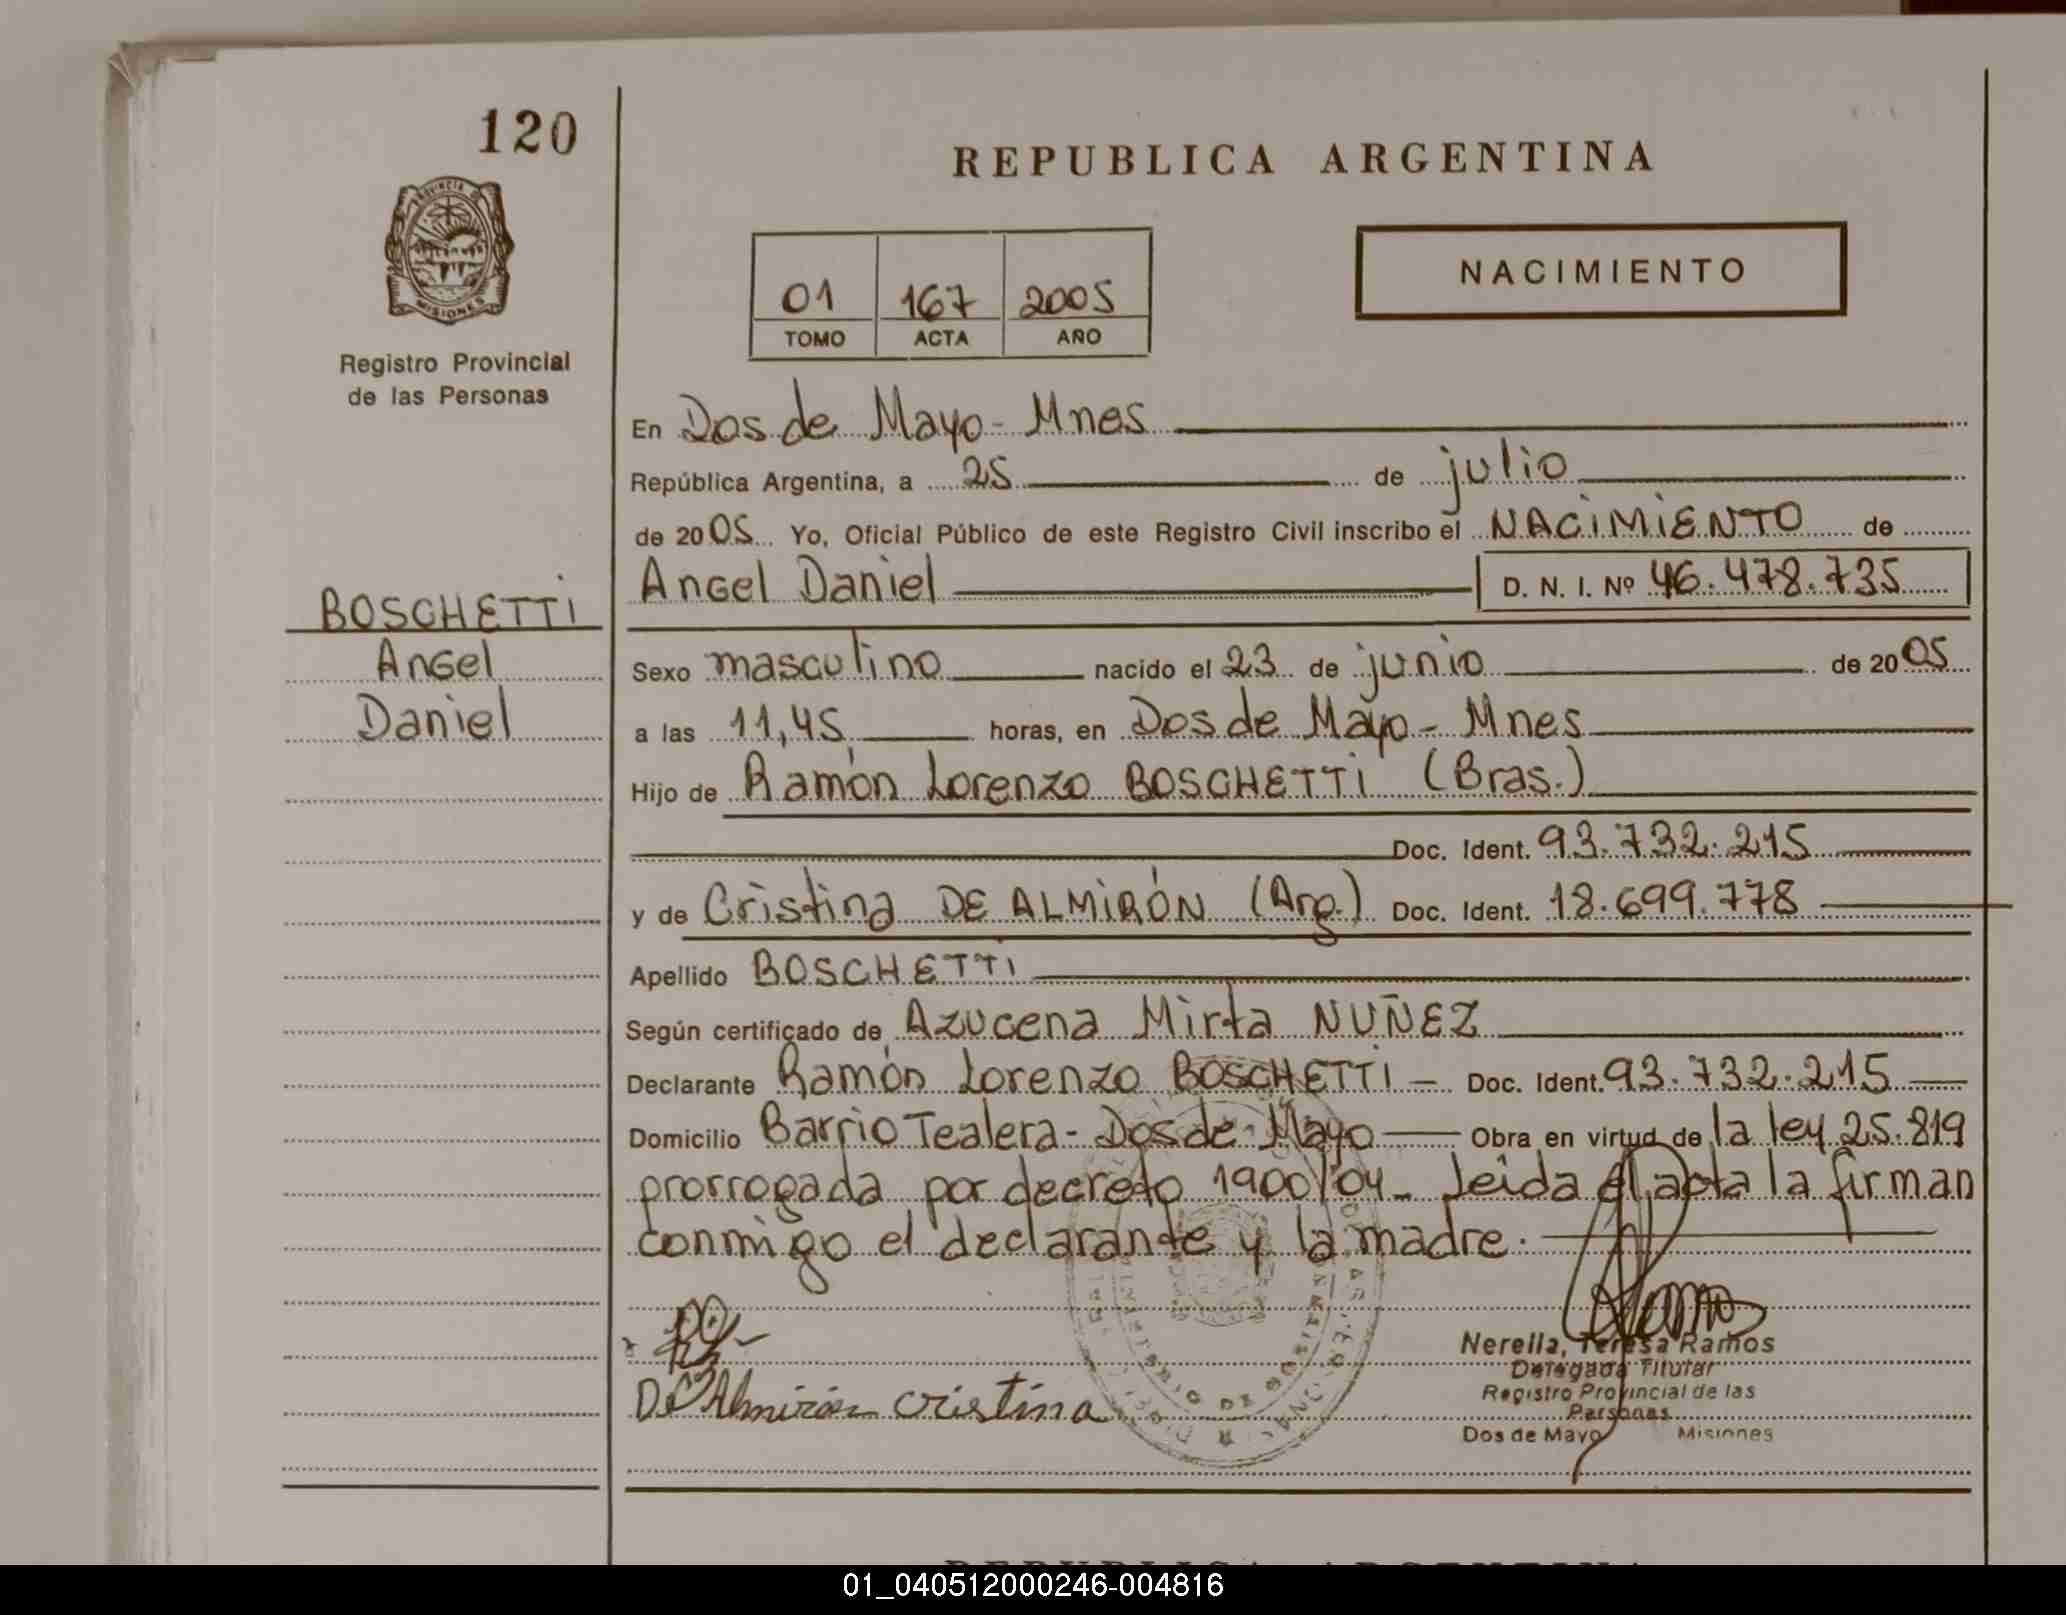 120
REPUBLICA ARGENTINA
PROVINCIA DE
MISIONES
NACIMIENTO
01 167 2005
TOMO ACTA AÑO
Registro Provincial
de las Personas
En Dos de Mayo - Mnes
República Argentina, a 25 de julio
de 2005 Yo, Oficial Público de este Registro Civil inscribo el NACIMIENTO de
Angel Daniel D. N. I. Nº 46.478.735
BOSCHETTI
Angel
Daniel
Sexo masculino nacido el 23 de junio de 2005
a las 11,45 horas, en Dos de Mayo - Mnes
Hijo de Ramón Lorenzo BOSCHETTI (Bras.)
Doc. Ident. 93.732.215
y de Cristina DE ALMIRÓN (Arg.) Doc. Ident. 18.699.778
Apellido BOSCHETTI
Según certificado de Azucena Mirta NUÑEZ
Declarante Ramón Lorenzo BOSCHETTI - Doc. Ident. 93.732.215
Domicilio Barrio Tealera - Dos de Mayo Obra en virtud de la ley 25.819
prorrogada por decreto 1900/04 - Leida el acta la firman
conmigo el declarante y la madre.
De Almirón cristina
Nerella, Teresa Ramos
Delegada Titular
Registro Provincial de las
Personas
Dos de Mayo Misiones
REPUBLICA ARGENTINA
01_040512000246-004816